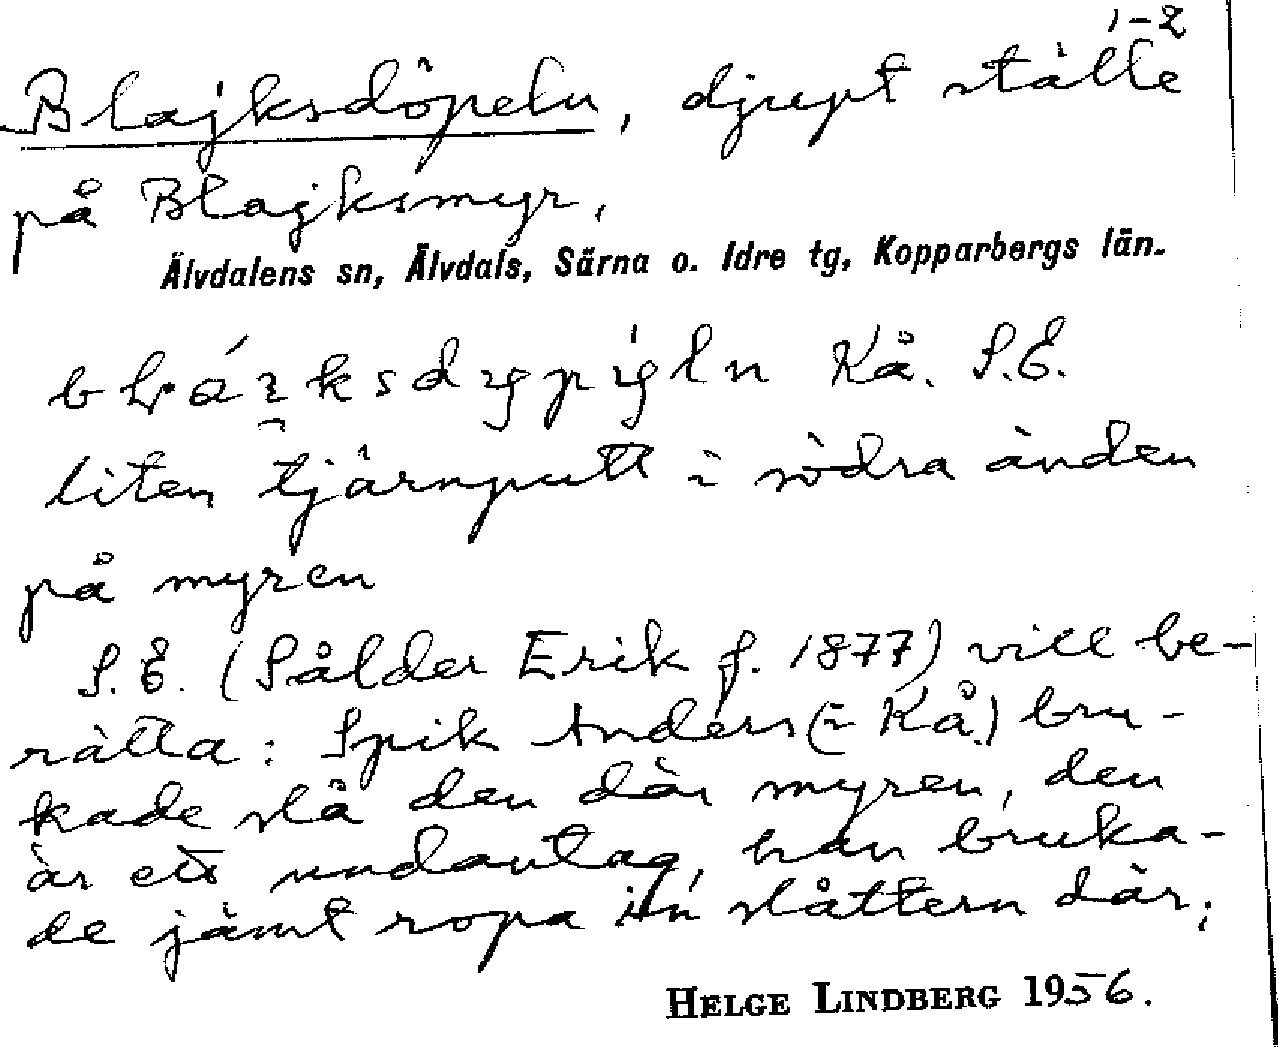 1-2
Blajksdöpeln, djupt ställe
på Blajksmyr,
Älvdalens sn, Älvdals, Särna o. Idre tg, Kopparbergs län.
Kå. S.E.
liten tjärnputt i södra änden
på myren
S.E. (Sålder Erik f. 1877) vill be-
rätta: Spik Anders (i Kå.) bru-
kade slå den där myren, den
är ett undantag, han bruka-
de jämt ropa in slåttern där;
HELGE LINDBERG 1956.